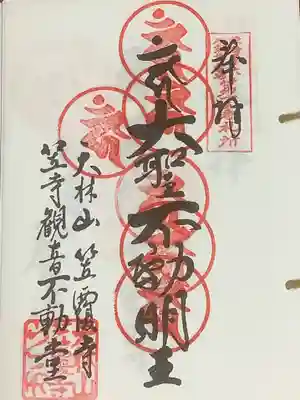 奉拝
大聖不動明王
大林山 笠覆寺
笠寺観音不動堂